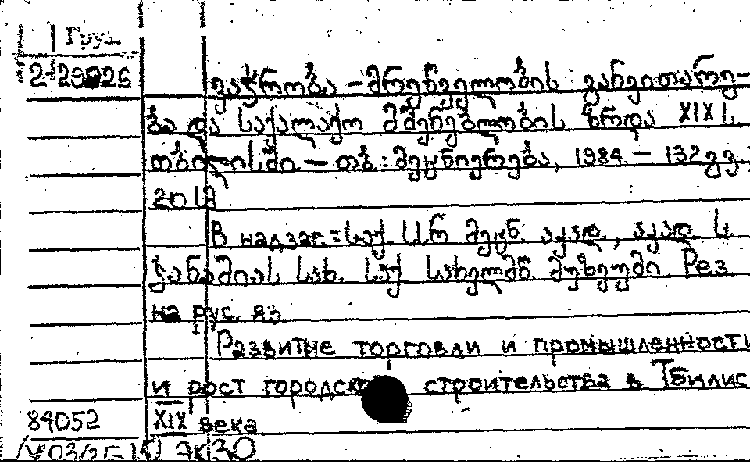 Груз.
2-29026
ვაჭრობა-მრეწველობის განვითარე-
ბა და საქალაქო მშენებლობის ზრდა XIX ს.
თბილისში. – თბ.: მეცნიერება, 1984 – 132 გვ.;
20 სმ
В надзаг.: საქ. სსრ მეცნ. აკად., აკად. ს.
ჯანაშიას სახ. საქ. სახელმწ. მუზეუმი. Рез.
на рус. яз.
Развитие торговли и промышленности
и рост городско строительства в Тбилис
84052
XIX века